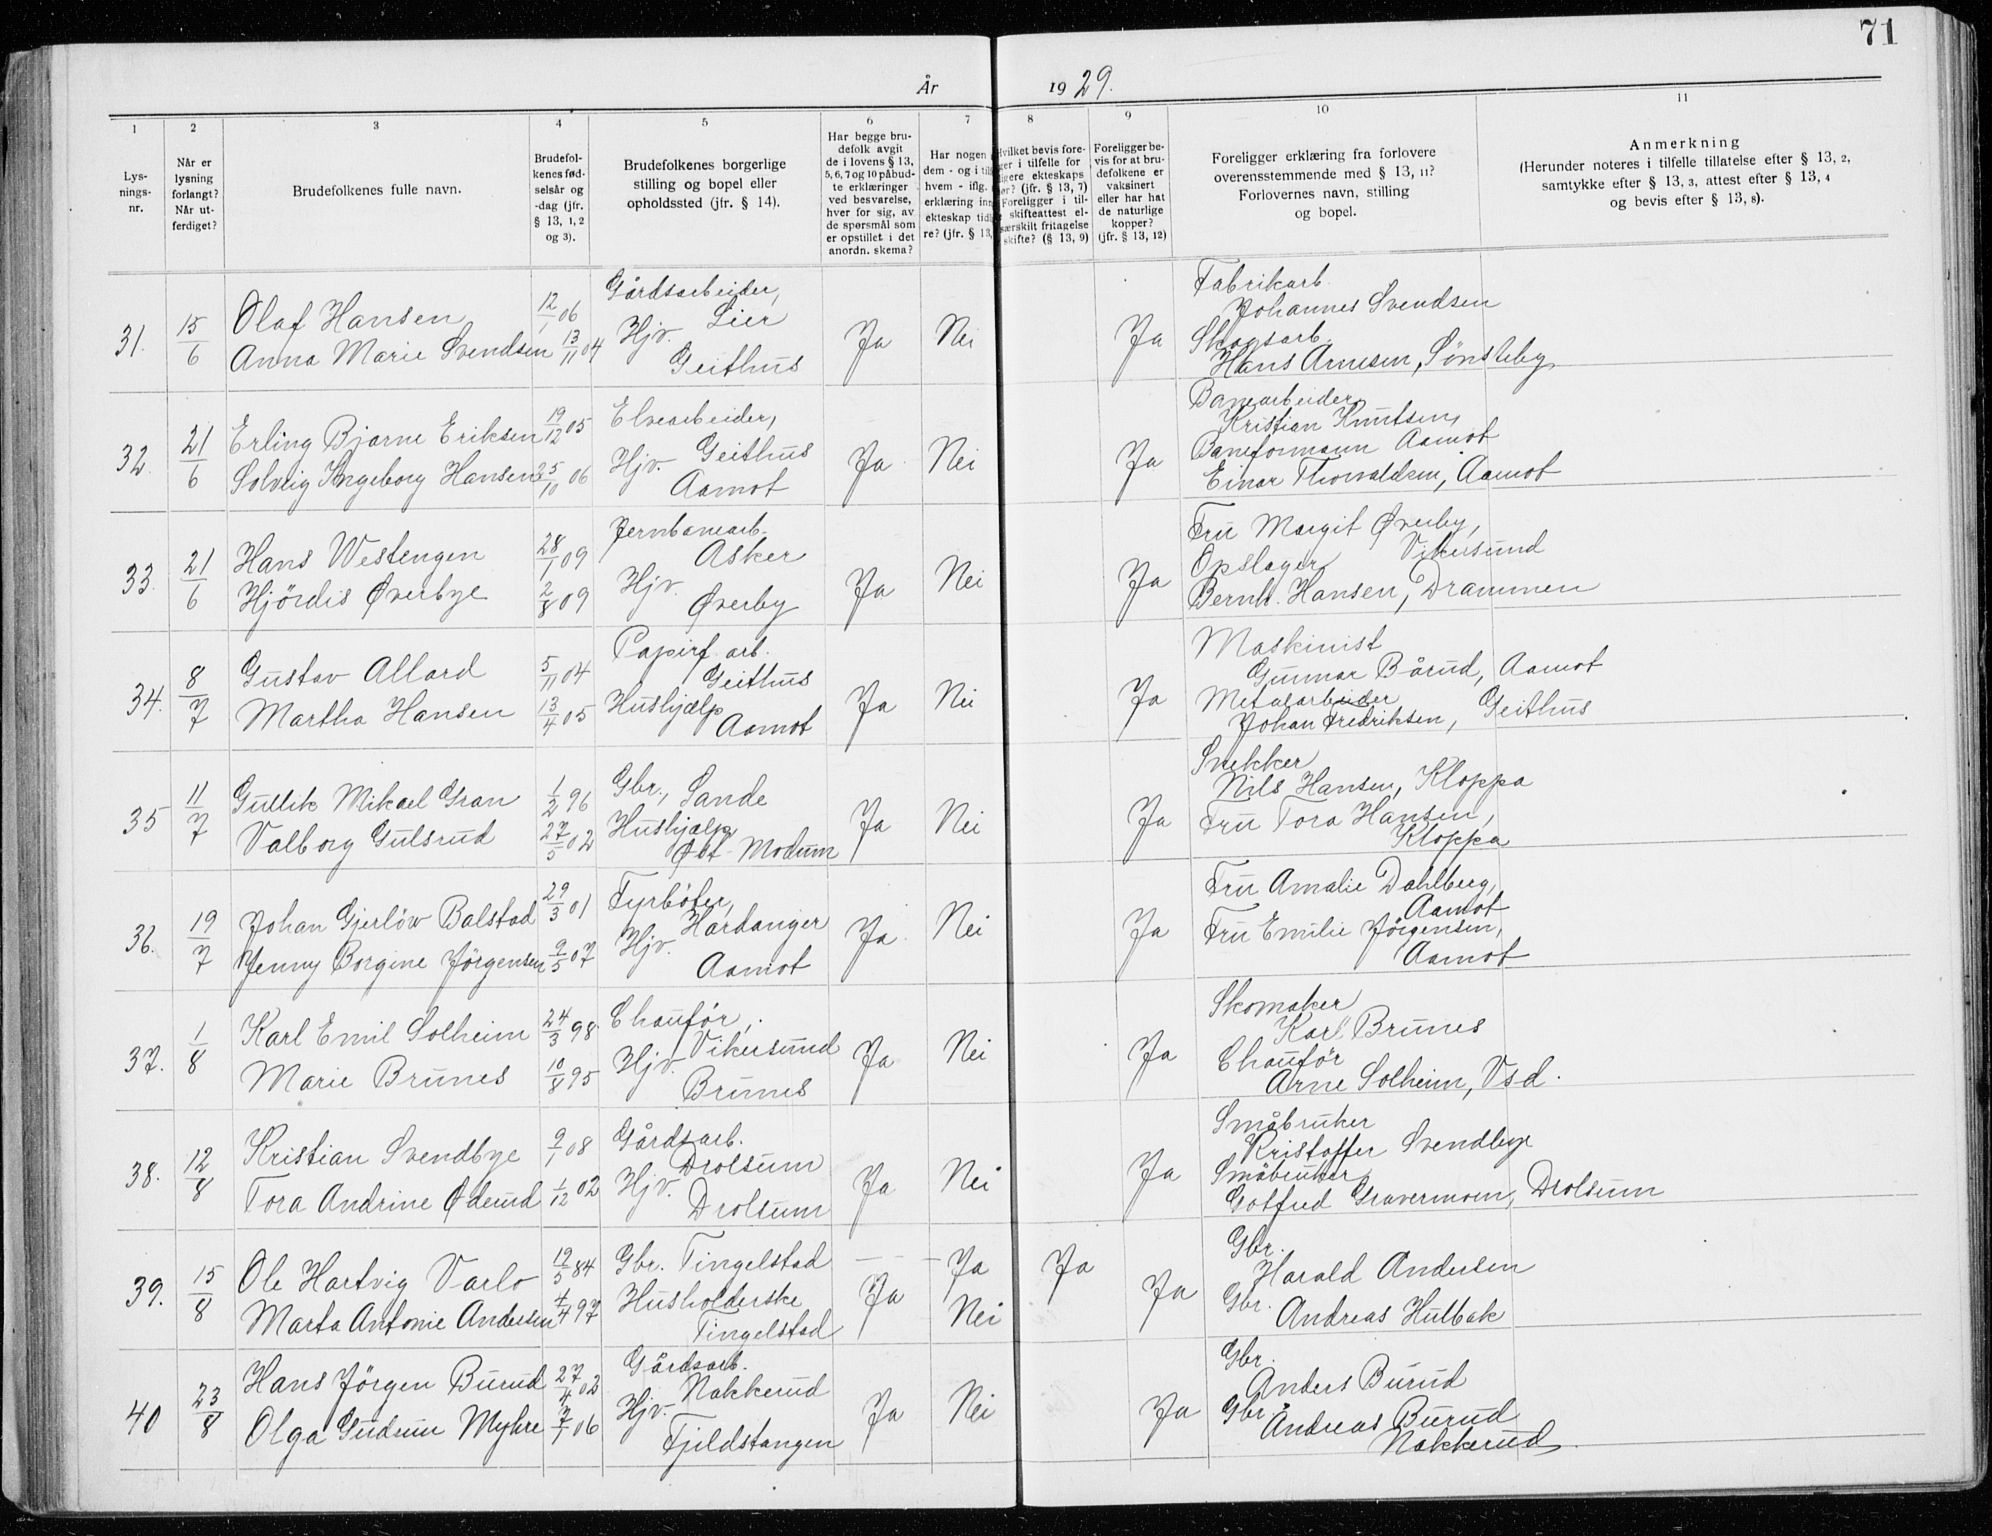 71
År 1929.
1
2
3
4
5
6
7
8
9
10
11
Lys-
nings-
nr.
Når er
lysning
forlangt?
Når ut-
ferdiget?
Brudefolkenes fulle navn.
Brudefol-
kenes fød-
selsår og
-dag (jfr.
§ 13, 1, 2
og 3).
Brudefolkenes borgerlige
stilling og bopel eller
opholdssted (jfr. § 14).
Har begge bru-
defolk avgit
de i lovens § 13,
5, 6, 7 og 10 påbud-
te erklæringer
ved besvarelse,
hver for sig, av
de spørsmål som
er opstillet i det
anordn. skema?
Har nogen
dem - og i til
hvem - iflg.
erklæring inn
ekteskap tidl
re? (jfr. § 13,
Hvilket bevis fore-
ger i tilfelle for
ligere ekteskaps
ør? (jfr. § 13, 7)
Foreligger i til-
skifteattest el-
særskilt fritagelse
skifte? (§ 13, 9)
Foreligger be-
vis for at bru-
defolkene er
vaksinert
eller har hat
de naturlige
kopper?
(jfr. § 13, 12)
Foreligger erklæring fra forlovere
overensstemmende med § 13, 11?
Forlovernes navn, stilling
og bopel.
Anmerkning
(Herunder noteres i tilfelle tillatelse efter § 13, 2,
samtykke efter § 13, 3, attest efter § 13, 4
og bevis efter § 13, 8).
31. 15/6 Olaf Hansen 12/1 06 Gårdsarbeider, Lier
Anna Marie Svendsen 13/11 04 Hjv. Geithus
Ja Nei Ja
Fabrikarb.
Johannes Svendsen
Skogsarb.
Hans Arnesen, Sønsteby
32. 21/6 Erling Bjarne Eriksen 19/12 05 Elvearbeider, Geithus
Solveig Ingeborg Hansen 25/10 06 Hjv. Aamot
Ja Nei Ja
Banearbeider
Kristian Knutsen, Aamot
Baneformann
Einar Thorvaldsen, Aamot
33. 21/6 Hans Westengen 28/1 09 Jernbanearb. Asker
Hjördis Øverbye 2/8 09 Hjv. Øverby
Ja Nei Ja
Fru Margit Øverby,
Vikersund
Opslager
Bernh. Hansen, Drammen
34. 8/7 Gustav Allard 5/11 04 Papirf. arb. Geithus
Martha Hansen 13/4 05 Hushjælp Aamot
Ja Nei Ja
Maskinist
Gunnar Bårud, Aamot
Metalarbeider
Johan Fredriksen, Geithus
35 11/7 Gullik Mikael Gran 1/2 96 Gbr., Sande
Valborg Gulsrud 27/5 02 Hushjælp Øst Modum
Ja Nei Ja
Snekker
Nils Hansen, Kloppa
Fru Tora Hansen,
Kloppa
36. 19/7 Johan Gjerlöw Balstad 29/3 01 Fyrböter, Hardanger
Jenny Borgine Jörgensen 9/5 07 Hjv. Aamot
Ja Nei Ja
Fru Amalie Dahlberg,
Aamot
Fru Emilie Jörgensen,
Aamot
37. 1/8 Karl Emil Solheim 24/3 98 Chauför, Vikersund
Marie Brunes 10/8 95 Hjv. Brunes
Ja Nei Ja
Skomaker
Karl Brunes
Chauför
Arne Solheim, Vsd.
38. 12/8 Kristian Svendbye 9/1 08 Gårdsarb. Drolsum
Tora Andrine Øderud 1/12 02 Hjv. Drolsum
Ja Nei Ja
Småbruker
Kristoffer Svendbye
Småbruker
Gotfred Gravermoen, Drolsum
39. 15/8 Ole Hartvig Varlo 12/5 84 Gbr. Tingelstad — — Ja Ja
Marta Antonie Andersen 4/4 97 Husholderske Tingelstad Ja Nei Ja
Gbr.
Harald Andersen
Gbr.
Andreas Hulbak
40 23/8 Hans Jörgen Burud 27/4 02 Gårdsarb. Nakkerud
Olga Gudrun Myhre 7/1 06 Hjv. Fjeldstangen
Ja Nei Ja
Gbr.
Anders Burud
Gbr.
Andreas Burud
Nakkerud.